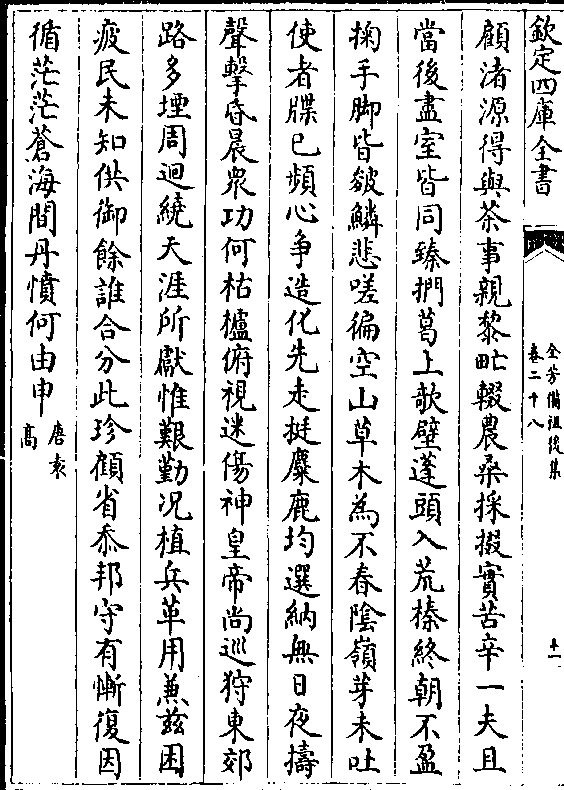 欽定四庫全書
全芳備祖後集
卷二十八
十一
顧渚源得與茶事親黎甿輟農桑採掇實苦辛一夫且
當後盡室皆同臻捫葛上欹壁蓬頭入荒榛終朝不盈
掬手脚皆皴鱗悲嗟徧空山草木為不春陰嶺芽未吐
使者牒已頻心争造化先走挺麋鹿均選納無日夜擣
聲擊昏晨衆功何枯櫨俯視迷傷神皇帝尚巡狩東郊
路多堙周迴繞天涯所獻惟艱勤况植兵革用兼兹困
疲民未知供御餘誰合分此珍顧省忝邦守有慚復因
循茫茫蒼海間丹憤何由申
唐袁
高